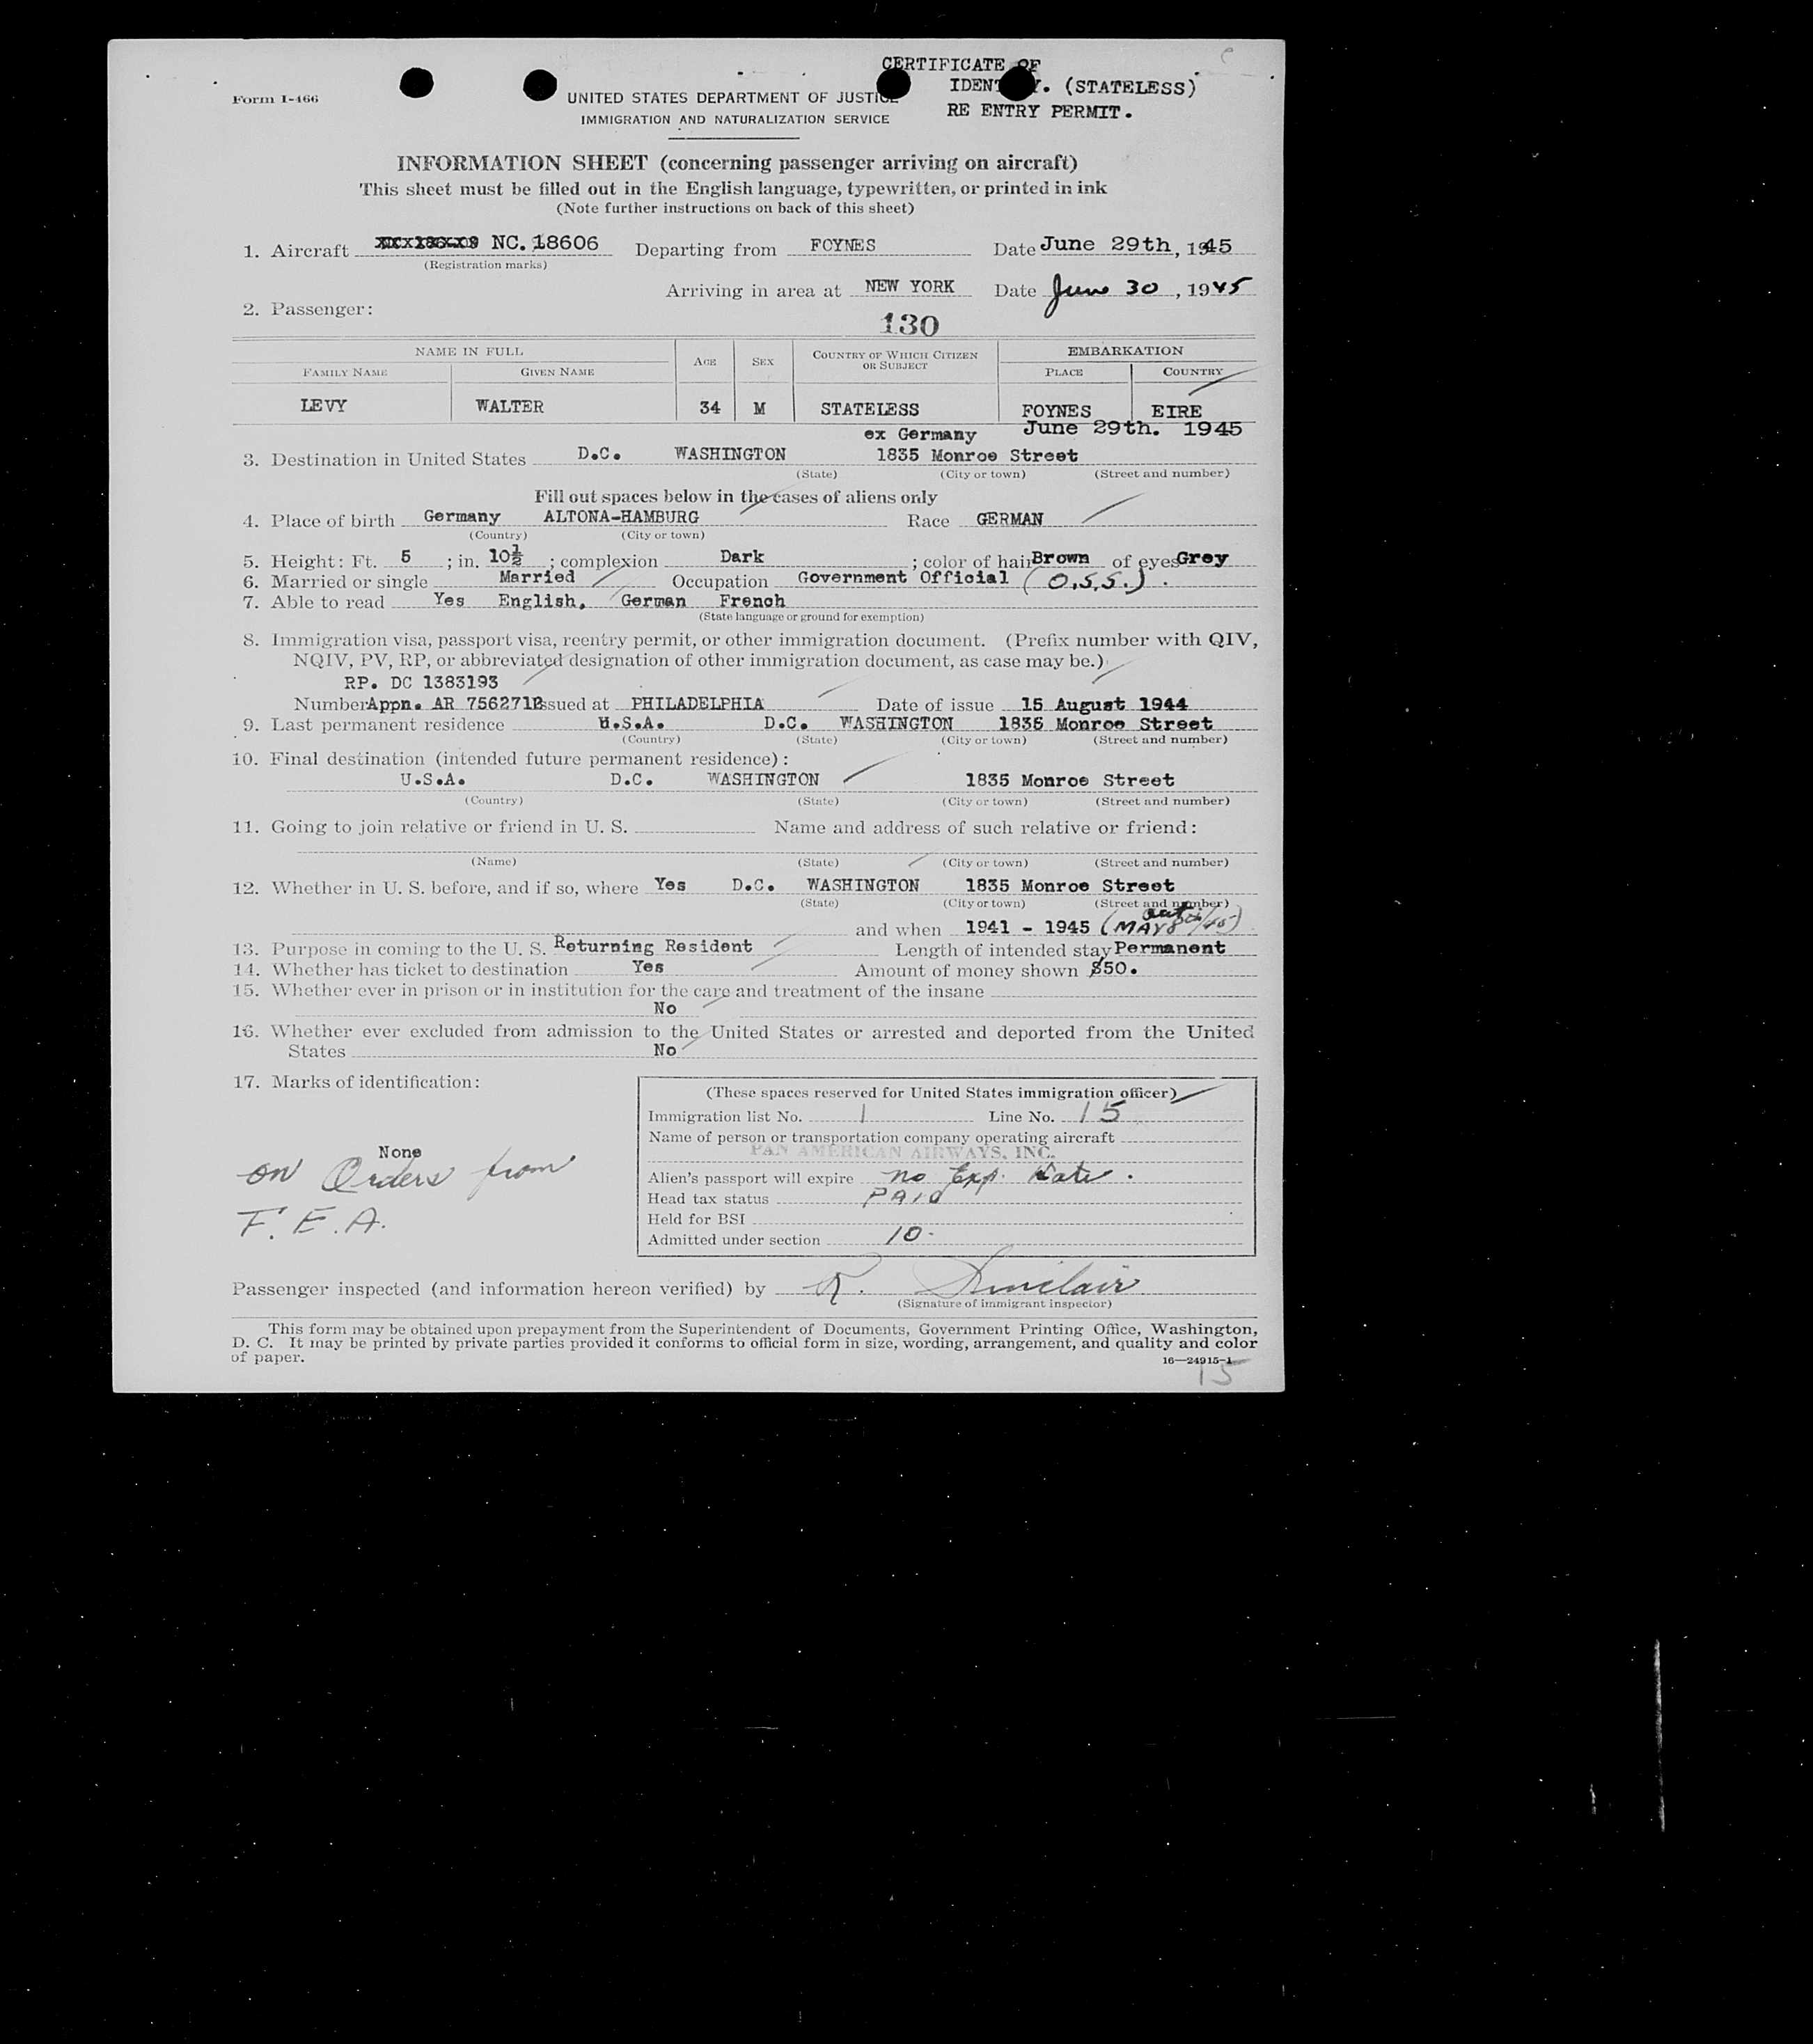 CERTIFICATE OF
Form I-466
UNITED STATES DEPARTMENT OF JUSTICE
IDEN Y. (STATELESS)
IMMIGRATION AND NATURALIZATION SERVICE
RE ENTRY PERMIT.
INFORMATION SHEET (concerning passenger arriving on aircraft)
This sheet must be filled out in the English language, typewritten, or printed in ink
(Note further instructions on back of this sheet)
1. Aircraft NC. 18606 Departing from FOYNES Date June 29th, 1945
(Registration marks)
Arriving in area at NEW YORK Date June 30, 1945
2. Passenger:
130
NAME IN FULL AGE SEX COUNTRY OF WHICH CITIZEN OR SUBJECT EMBARKATION
FAMILY NAME GIVEN NAME PLACE COUNTRY
LEVY WALTER 34 M STATELESS FOYNES EIRE
ex Germany June 29th. 1945
3. Destination in United States D.C. WASHINGTON 1835 Monroe Street
(State) (City or town) (Street and number)
Fill out spaces below in the cases of aliens only
4. Place of birth Germany ALTONA-HAMBURG Race GERMAN
(Country) (City or town)
5. Height: Ft. 5 ; in. 10½ ; complexion Dark ; color of hair Brown of eyes Grey
6. Married or single Married Occupation Government Official (O.S.S.).
7. Able to read Yes English, German French
(State language or ground for exemption)
8. Immigration visa, passport visa, reentry permit, or other immigration document. (Prefix number with QIV,
NQIV, PV, RP, or abbreviated designation of other immigration document, as case may be.)
RP. DC 1383193
Number Appn. AR 7562712 Issued at PHILADELPHIA Date of issue 15 August 1944
9. Last permanent residence U.S.A. D.C. WASHINGTON 1835 Monroe Street
(Country) (State) (City or town) (Street and number)
10. Final destination (intended future permanent residence):
U.S.A. D.C. WASHINGTON 1835 Monroe Street
(Country) (State) (City or town) (Street and number)
11. Going to join relative or friend in U. S. Name and address of such relative or friend:
(Name) (State) (City or town) (Street and number)
12. Whether in U. S. before, and if so, where Yes D.C. WASHINGTON 1835 Monroe Street
(State) (City or town) (Street and number)
and when 1941 - 1945 (MAY
13. Purpose in coming to the U. S. Returning Resident Length of intended stay Permanent
14. Whether has ticket to destination Yes Amount of money shown $50.
15. Whether ever in prison or in institution for the care and treatment of the insane
No
16. Whether ever excluded from admission to the United States or arrested and deported from the United
States No
17. Marks of identification:
None
on Orders from
F.E.A.
(These spaces reserved for United States immigration officer)
Immigration list No. 1 Line No. 15
Name of person or transportation company operating aircraft
PAN AMERICAN AIRWAYS, INC.
Alien's passport will expire no Exp. Date.
Head tax status PAID
Held for BSI
Admitted under section 10.
Passenger inspected (and information hereon verified) by R. Sinclair
(Signature of immigrant inspector)
This form may be obtained upon prepayment from the Superintendent of Documents, Government Printing Office, Washington,
D. C. It may be printed by private parties provided it conforms to official form in size, wording, arrangement, and quality and color
of paper.
16—24915-1
15